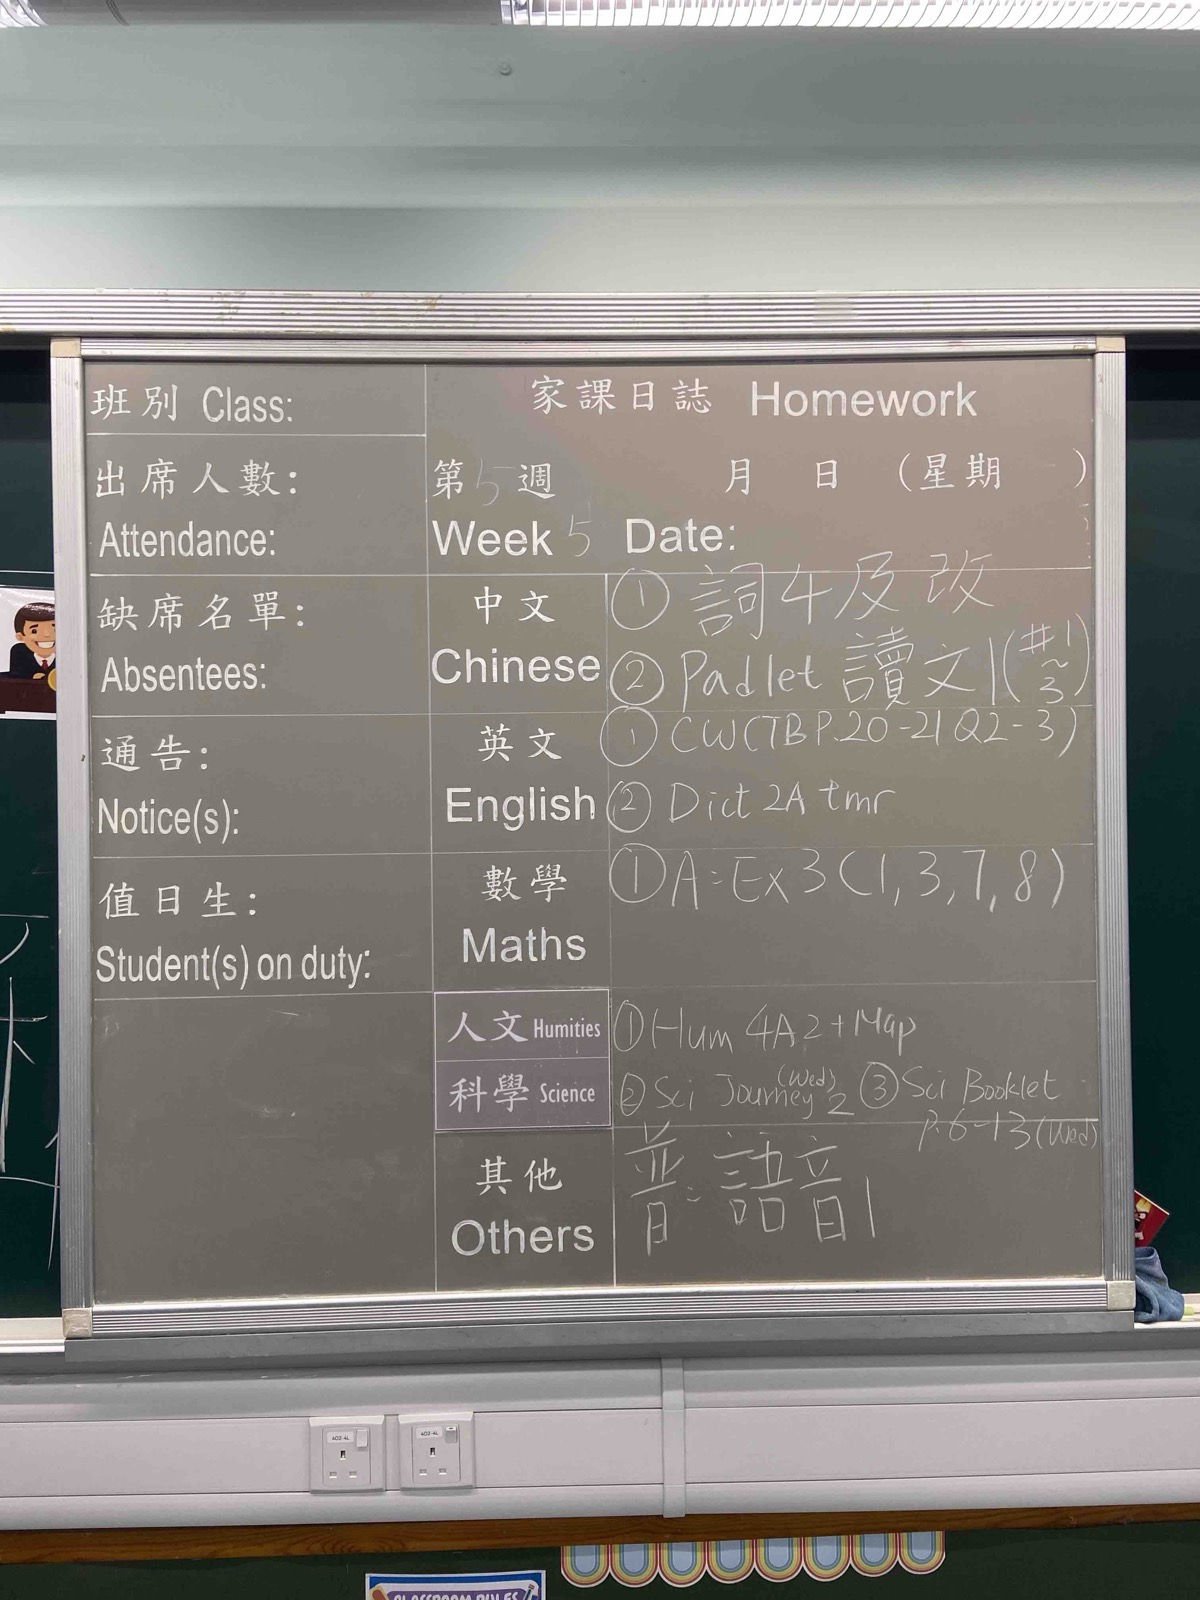 班別 Class:
家課日誌 Homework
出席人數:
Attendance:
第5週 月 日 (星期 )
Week 5 Date:
缺席名單:
Absentees:
中文
Chinese
① 詞4及改
② Padlet 讀文1(#1~3)
通告:
Notice(s):
英文
English
① CW(TB P.20-21 Q2-3)
② Dict 2A tmr
值日生:
Student(s) on duty:
數學
Maths
① A:Ex3(1,3,7,8)
人文 Humities
① Hum 4A2+Map
科學 Science
② Sci Journey 2 (Wed) ③ Sci Booklet
P.6-13(Wed)
其他
Others
普:語音1
402-4L
402-4L
CLASSROOM RULES